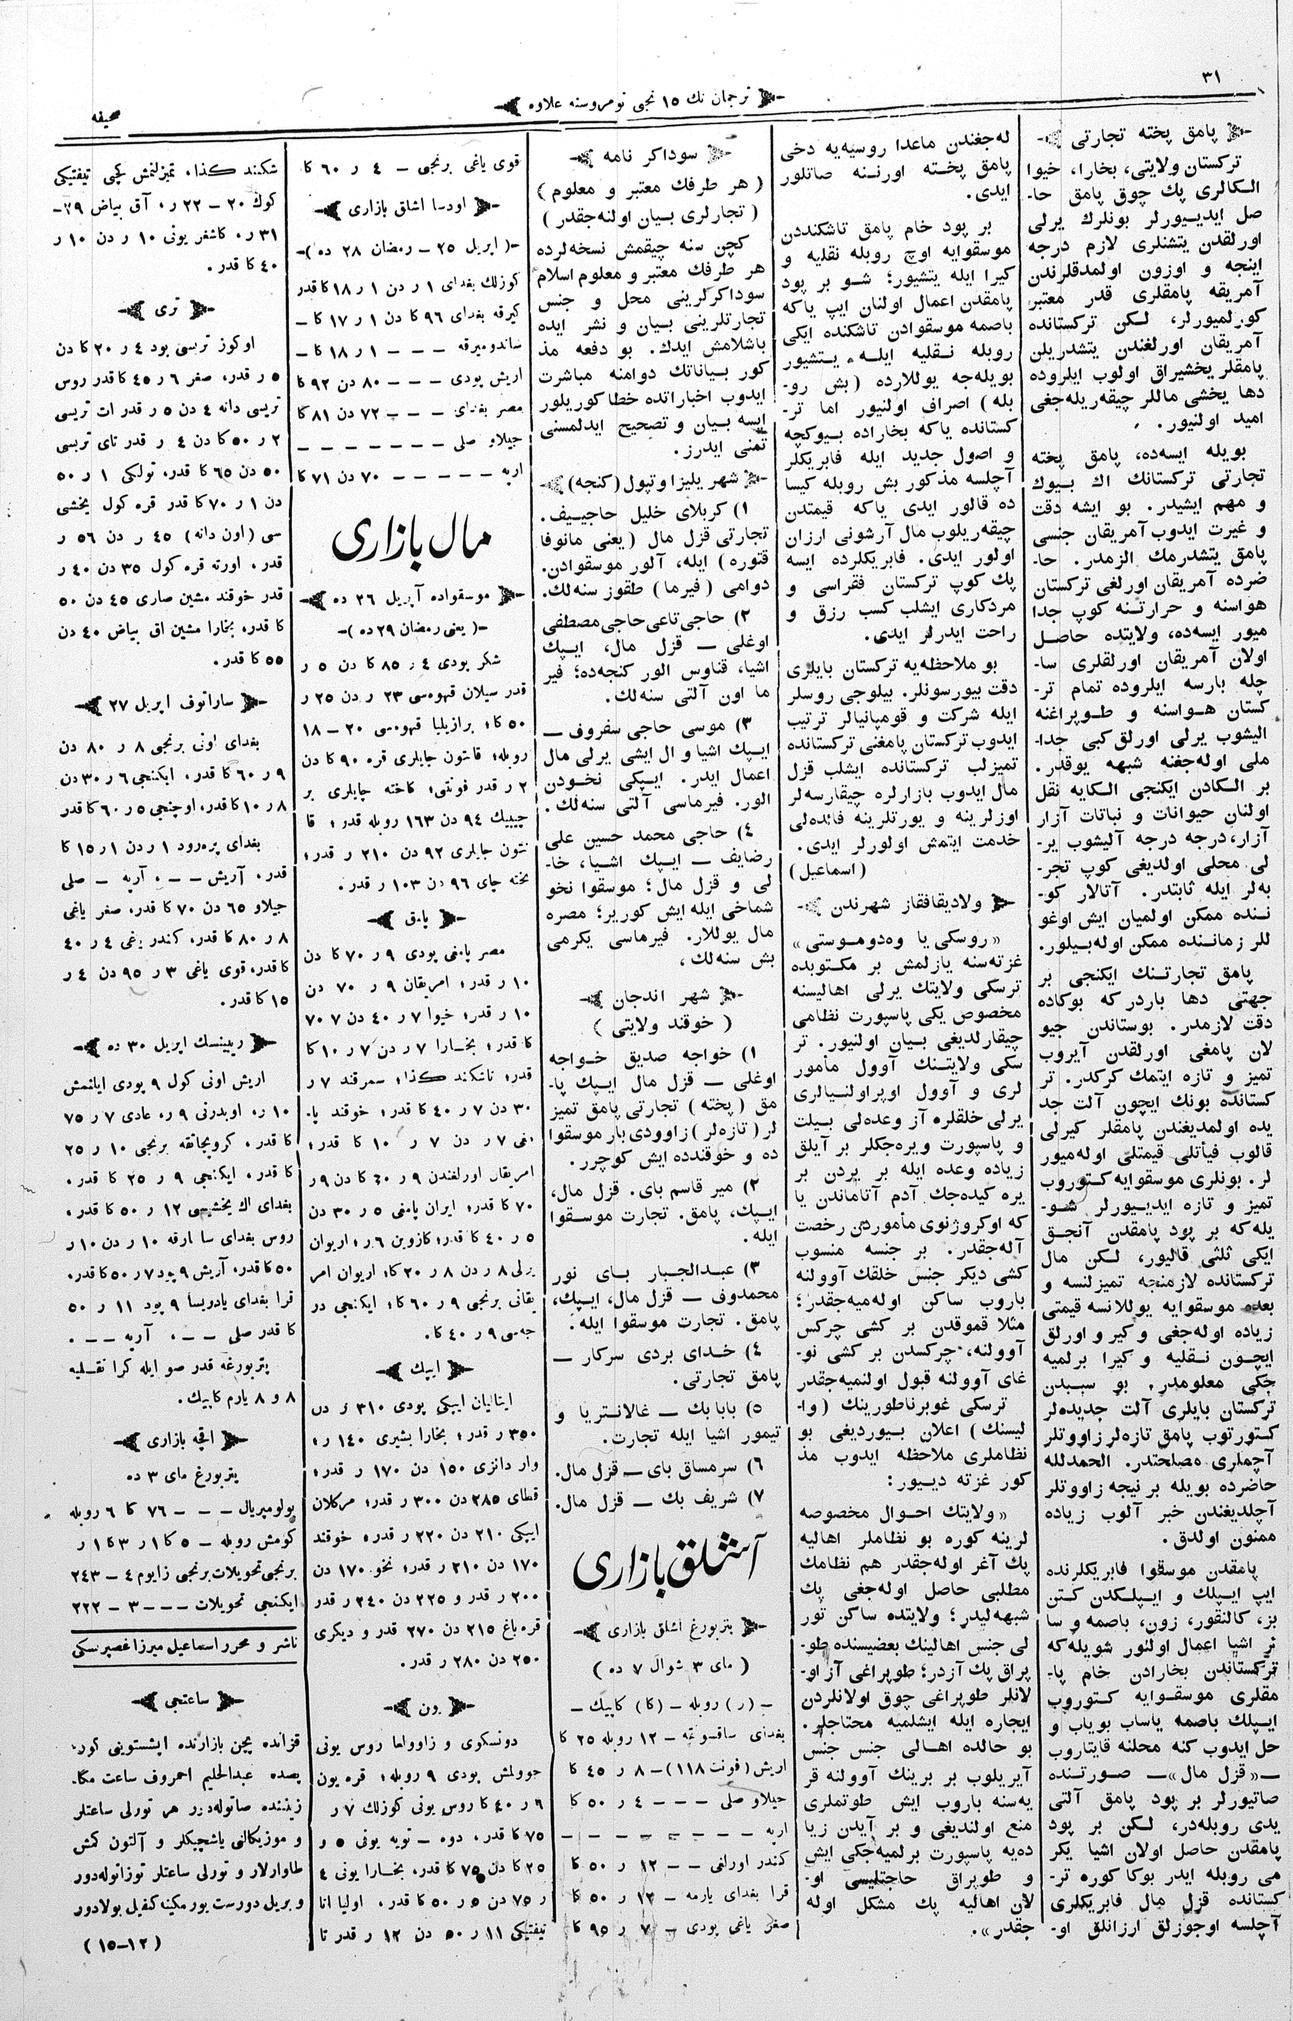 ٣١
ترجمان نك ١٥ نجی نومروسنه علاوه
صحیفه
پامق پخته تجارتی
تركستان ولایتی، بخارا، خیوا
الكالری پك چوق پامق حا-
صل ایدییورلر بونلرك یرلی
اورلقدن یتشنلری لازم درجه
اینجه و اوزون اولمدقلرندن
آمریقه پامقلری قدر معتبر
كورلمیورلر، لكن تركستانده
آمریقان اورلغندن یتشدریلن
پامقلر یخشیراق اولوب ایلروده
دها یخشی ماللر چیقه‌ریله‌جغی
امید اولنیور.
بویله ایسه‌ده، پامق پخته
تجارتی تركستانك اك بیوك
و مهم ایشیدر. بو ایشه دقت
و غیرت ایدوب آمریقان جنسی
پامق یتشدرمك الزمدر. حا-
ضرده آمریقان اورلغی تركستان
هواسنه و حرارتنه كوپ جدا
میور ایسه‌ده، ولایتده حاصل
اولان آمریقان اورلقلری سا-
چله بارسه ایلروده تمام تر-
كستان هواسنه و طوپراغنه
الیشوب یرلی اورلق كبی جدا-
ملی اوله‌جغنه شبهه یوقدر.
بر الكادن ایكنجی الكایه نقل
اولنان حیوانات و نباتات آزار
آزار، درجه درجه آلیشوب یر-
لی محلی اولدیغی كوپ تجر-
به‌لر ایله ثابتدر. آتالار كو-
ننده ممكن اولمیان ایش اوغو
للر زماننده ممكن اوله‌بیلور.
پامق تجارتنك ایكنجی بر
جهتی دها باردر كه بوكاده
دقت لازمدر. بوستاندن جیو
لان پامغی اورلقدن آیروب
تمیز و تازه ایتمك كركدر. تر
كستانده بونك ایچون آلت جد
یده اولمدیغندن پامقلر كیرلی
قالوب فیأتلی قیمتلی اوله‌میور
لر. بونلری موسقوایه كتوروب
تمیز و تازه ایدییورلر شو-
یله‌كه بر پود پامقدن آنجق
ایكی ثلثی قالیور، لكن مال
تركستانده لازمنجه تمیزلنسه و
بعده موسقوایه یوللانسه قیمتی
زیاده اوله‌جغی و كیر و اورلق
ایچون نقلیه و كیرا برلمیه
جكی معلومدر. بو سببدن
تركستان بایلری آلت جدیده‌لر
كتورتوب پامق تازه‌لر زاووتلر
آچملری مصلحتدر. الحمدلله
حاضرده بویله بر نیجه زاووتلر
آچلدیغندن خبر آلوب زیاده
ممنون اولدق.
پامقدن موسقوا فابریكلرنده
ایپ ایپلك و ایپلكدن كتن
بز، كالنقور، زون، باصمه و سا
ئر اشیا اعمال اولنور شویله‌كه
تركستاندن بخارادن خام پا-
مقلری موسقوایه كتوروب
ایپلك باصمه یاساب بویاب و
حل ایدوب كنه محلنه قایتاروب
—«قزل مال»— صورتنده
صاتیورلر بر پود پامق آلتی
یدی روبله‌در، لكن بر پود
پامقدن حاصل اولان اشیا یكر
می روبله ایدر بوكا كوره تر-
كستانده قزل مال فابریكلری
آچلسه اوجوزلق ارزانلق او-
له‌جغندن ماعدا روسیه‌یه دخی
پامق پخته اورننه صاتلور
ایدی.
بر پود خام پامق تاشكنددن
موسقوایه اوچ روبله نقلیه و
كیرا ایله یتشیور؛ شو بر پود
پامقدن اعمال اولنان ایپ یاكه
باصمه موسقوادن تاشكنده ایكی
روبله نقلیه ایله یتشیور
بویله‌جه یوللارده (بش رو-
بله) اصراف اولنیور اما تر-
كستانده یاكه بخاراده بیوكچه
و اصول جدید ایله فابریكلر
آچلسه مذكور بش روبله كیسا
ده قالور ایدی یاكه قیمتدن
چیقه‌ریلوب مال آرشونی ارزان
اولور ایدی. فابریكلرده ایسه
پك كوپ تركستان فقراسی و
مردكاری ایشلب كسب رزق و
راحت ایدرلر ایدی.
بو ملاحظه‌یه تركستان بایلری
دقت بیورسونلر. بیلوجی روسلر
ایله شركت و قومپانیالر ترتیب
ایدوب تركستان پامغنی تركستانده
تمیزلب تركستانده ایشلب قزل
مال ایدوب بازارلره چیقارسه‌لر
اوزلرینه و یورتلرینه فائده‌لی
خدمت ایتمش اولورلر ایدی.
(اسماعیل)
ولادیقافقاز شهرندن
«روسكی یا وه‌دوموستی»
غزته‌سنه یازلمش بر مكتوبده
ترسكی ولایتك یرلی اهالیسنه
مخصوص یكی پاسپورت نظامی
چیقارلدیغی بیان اولنیور. تر
سكی ولایتنك آوول مأمور
لری و آوول اوپراولنیالری
یرلی خلقلره آز وعده‌لی بیلت
و پاسپورت ویره‌جكلر بر آیلق
زیاده وعده ایله بر یردن بر
یره كیده‌جك آدم آتاماندن یا
كه اوكروژنوی مأموردن رخصت
آله‌جقدر. بر جنسه منسوب
كشی دیكر جنس خلقك آوولنه
باروب ساكن اوله‌میه‌جقدر؛
مثلا قموقدن بر كشی چركس
آوولنه، چركسدن بر كشی نو-
غای آوولنه قبول اولنمیه‌جقدر
ترسكی غوبرناطورینك (وا-
لیسنك) اعلان بیوردیغی بو
نظاملری ملاحظه ایدوب مذ
كور غزته دییور:
«ولایتك احوال مخصوصه
لرینه كوره بو نظاملر اهالیه
پك آغر اوله‌جقدر هم نظامك
مطلبی حاصل اوله‌جغی پك
شبهه‌لیدر؛ ولایتده ساكن تور
لی جنس اهالینك بعضیسنده طو-
پراق پك آزدر؛ طوپراغی آز او-
لانلر طوپراغی چوق اولانلردن
ایجاره ایله ایشلمیه محتاجلر.
بو حالده اهالی جنس جنس
آیریلوب بر برینك آوولنه قر
یه‌سنه باروب ایش طوتملری
منع اولندیغی و بر آیدن زیا
ده‌یه پاسپورت برلمیه‌جكی ایش
و طوپراق حاجتلیسی او-
لان اهالیه پك مشكل اوله
جقدر».
سوداكر نامه
(هر طرفك معتبر و معلوم)
(تجارلری بیان اولنه‌جقدر)
كچن سنه چیقمش نسخه‌لرده
هر طرفك معتبر و معلوم اسلام
سوداكرلرینی محل و جنس
تجارتلرینی بیان و نشر ایده
باشلامش ایدك. بو دفعه مذ
كور بیاناتك دوامنه مباشرت
ایدوب اخباراتده خطا كوریلور
ایسه بیان و تصحیح ایدلمسنی
تمنی ایدرز.
شهر یلیزاوتپول (كنجه)
١) كربلای خلیل حاجییف.
تجارتی قزل مال (یعنی مانوفا
قتوره) ایله، آلور موسقوادن.
دوامی (فیرما) طقوز سنه‌لك.
٢) حاجی تاعی حاجی مصطفی
اوغلی — قزل مال، ایپك
اشیا، قناوس الور كنجه‌ده؛ فیر
ما اون آلتی سنه‌لك.
٣) موسی حاجی سفروف —
ایپك اشیا و ال ایشی یرلی مال
اعمال ایدر. ایپكی نخودن
الور. فیرماسی آلتی سنه‌لك.
٤) حاجی محمد حسین علی
رضایف — ایپك اشیا، خا-
لی و قزل مال؛ موسقوا نخو
شماخی ایله ایش كوریر؛ مصره
مال یوللار. فیرماسی یكرمی
بش سنه‌لك،
شهر اندجان
(خوقند ولایتی)
١) خواجه صدیق خواجه
اوغلی — قزل مال ایپك پا-
مق (پخته) تجارتی پامق تمیز
لر (تازه‌لر) زاوودی بار موسقوا
ده و خوقندده ایش كوچرر.
٢) میر قاسم بای. قزل مال،
ایپك، پامق. تجارت موسقوا
ایله.
٣) عبدالجبار بای نور
محمدوف — قزل مال، ایپك،
پامق. تجارت موسقوا ایله.
٤) خدای بردی سركار —
پامق تجارتی.
٥) بابا بك — غالانتریا و
تیمور اشیا ایله تجارت.
٦) سرمساق بای — قزل مال.
٧) شریف بك — قزل مال.
آشلق بازاری
پتربورغ اشلق بازاری
(مای ٣ شوال ٧ ده)
— (ر) روبله — (كا) كاپیك —
بغدای ساقسونقه — ١٢ روبله ٢٥ كا
اریش (فونت ١١٨) — ٨ ر ٤٥ كا
جیلاو صلی — — — ٤ ر ٥٠ كا
اربه — — — — — — — —
كندر اورلغی — — ١٢ ر ٥٠ كا
قرا بغدای یارمه — ١٢ ر ٥٠ كا
صغر یاغی پودی — ٧ ر ٩٥ كا
قوی یاغی برنجی — ٤ ر ٦٠ كا
اودسا اشلق بازاری
—(اپریل ٢٥ — رمضان ٢٨ ده)—
كوزلك بغدای ١ ر دن ١ ر ١٨ كا قدر
كیرقه بغدای ٩٦ كا دن ١ ر ١٧ كا —
ساندومیرقه — — — ١ ر ١٨ كا —
اریش پودی — — — ٨٠ دن ٩٢ كا
مصر بغدای — — — ٧٢ دن ٨١ كا
جیلاو صلی — — — — — — —
اربه — — — — — ٧٠ دن ٧١ كا
مال بازاری
موسقواده آپریل ٢٦ ده
—(یعنی رمضان ٢٩ ده)—
شكر پودی ٤ ر ٨٥ كا دن ٥ ر
قدر سیلان قهوه‌سی ٢٣ ر دن ٢٥ ر
٥٠ كا؛ برازیلیا قهوه‌سی ٢٠ — ١٨
روبله؛ قانتون چایلری قره ٩٠ كا دن
٢ ر قدر فونتی؛ كاخته چایلری بر
چیبیك ٩٤ دن ١٦٣ روبله قدر؛ قا
نتون چایلری ٩٢ دن ٢١٠ ر قدر؛
تخته چای ٩٦ دن ١٠٣ ر قدر.
پامق
مصر پامغی پودی ٩ ر ٧٠ كا دن
١٠ ر قدر؛ امریقان ٩ ر ٧٠ دن
١٠ ر قدر؛ خیوا ٧ ر ٤٠ دن ٧ ٧٠
كا قدر؛ بخارا ٧ ر دن ٧ ر ١٠ كا
قدر؛ تاشكند كذا؛ سمرقند ٧ ر
٣٠ دن ٧ ر ٤٠ كا قدر؛ خوقند پا-
مغی ٧ ر دن ٧ ر ١٠ كا قدر؛
امریقان اورلغندن ٩ ر ٤٠ كا دن ٩ ر
٧٠ كا قدر؛ ایران پامغی ٥ ر ٣٠ دن
٥ ر ٤٠ كا قدر؛ كازوین ٦ ر؛ اریوان
یرلی ٨ ر دن ٨ ر ٢٠ كا؛ اریوان امر
یقانی برنجی ٩ ر ٦٠ كا؛ ایكنجی در
جه‌سی ٩ ر ٤٠ كا.
ایپك
ایتالیان ایپكی پودی ٣١٠ ر دن
٣٥٠ ر قدر؛ بخارا بشیری ١٤٠ ر؛
وار دانزی ١٥٠ دن ١٧٠ ر قدر؛
قطای ٢٨٥ دن ٣٠٠ ر قدر؛ مركلان
ایپكی ٢١٠ دن ٢٢٠ ر قدر؛ خوقند
١٧٠ دن ٢١٠ ر قدر؛ نخو ١٧٠ دن
٢٠٠ ر قدر و ٢٢٥ دن ٢٤٠ ر قدر
قره باغ ٢١٥ دن ٢٧٠ قدر و دیكری
٢٥٠ دن ٢٨٠ ر قدر.
یون
دونسكوی و زاوولغا روس یونی
جوولمش پودی ٩ روبله؛ قره یون
٦ ر ٤٠ كا روس یونی كوزلك ٧ ر
٧٥ كا قدر. دوه — تویه یونی ٥ ر
٢٥ كا دن ٧٥ كا قدر، بخارا یونی ٤
ر ٧٥ دن ٥ ر ٥٠ كا قدر. اولیا اتا
تیفتیكی ١١ ر ٥٠ دن ١٢ ر قدر تا
شكند كذا، تمیزلنمش كچی تیفتیكی
كوك ٢٠ — ٢٢ ر، آق بیاض ٢٩—
٣١ ر، كاشغر یونی ١٠ ر دن ١٠ ر
٤٠ كا قدر.
تری
اوكوز تریسی پود ٤ ر ٢٠ كا دن
٥ ر قدر، صغر ٦ ر ٤٥ كا قدر روس
تریسی دانه ٤ دن ٥ ر قدر ات تریسی
٢ ر ٥٠ كا دن ٤ ر قدر تای تریسی
٥٠ دن ٦٥ كا قدر، تولكی ١ ر ٥٠
دن ١ ر ٧٠ كا قدر قره كول یخشی
سی (اون دانه) ٤٥ ر دن ٥٦ ر
قدر، اورته قره كول ٣٥ دن ٤٠ ر
قدر خوقند مشین صاری ٤٥ دن ٥٠
كا قدر، بخارا مشین اق بیاض ٤٠ دن
٥٥ كا قدر.
ساراتوف اپریل ٢٧
بغدای اونی برنجی ٨ ر ٨٠ دن
٩ ر ٦٠ كا قدر، ایكنجی ٦ ر ٣٠ دن
٨ ر ١٠ كا قدر، اوچنجی ٥ ر ٦٠ كا قدر
بغدای پره‌رود ١ ر دن ١ ر ١٥ كا
قدر، آریش — — ، آربه — صلی
جیلاو ٦٥ دن ٧٠ كا قدر، صغر یاغی
٨ ر ٨٠ كا قدر، كندر یاغی ٤ ر ٤٠
كا قدر، قوی یاغی ٣ ر ٩٥ دن ٤ ر
١٥ كا قدر.
ریبینسك اپریل ٣٠ ده
اریش اونی كول ٩ پودی ایلنمش
١٠ ر، اوبدرنی ٩ ر، عادی ٧ ر ٧٥
كا قدر، كروپچاتقه برنجی ١٠ ر ٢٥
كا قدر، ایكنجی ٩ ر ٢٥ كا قدر،
بغدای اك یخشیسی ١٢ ر ٥٠ كا قدر،
روس بغدای سا ارقه ١٠ ر دن ١٠ ر
٥٠ كا قدر، آریش ٩ پود ٧ ر ٥٠ كا قدر،
قرا بغدای یادریسا ٩ پود ١١ ر ٥٠
كا قدر صلی — — ، آربه — — .
پتربورغه قدر صو ایله كرا نقلیه
٨ و ٨ یارم كاپیك.
اقچه بازاری
پتربورغ مای ٣ ده
پولومپریال — — — ٧٦ كا ٦ روبله
كومش روبله — ٥ كا ١ ر ٣ كا ١ ر
برنجی تحویلات برنجی زایوم ٤ — ٢٤٣
ایكنجی تحویلات — — — ٣ — ٢٢٢
ناشر و محرر اسماعیل میرزا غصپرسكی
ساعتچی
قزانده پچن بازارنده ایشستوینی كور-
پصده عبدالحلیم احمروف ساعت مكا-
زیننده صاتوله‌در هر تورلی ساعتلر
و موزیكالنی یاشچیكلر و آلتون كمش
طاوارلار و تورلی ساعتلر توزاتوله‌دور
و بریل دورست یورمكینه كفیل بولادور
(١٥—١٢)